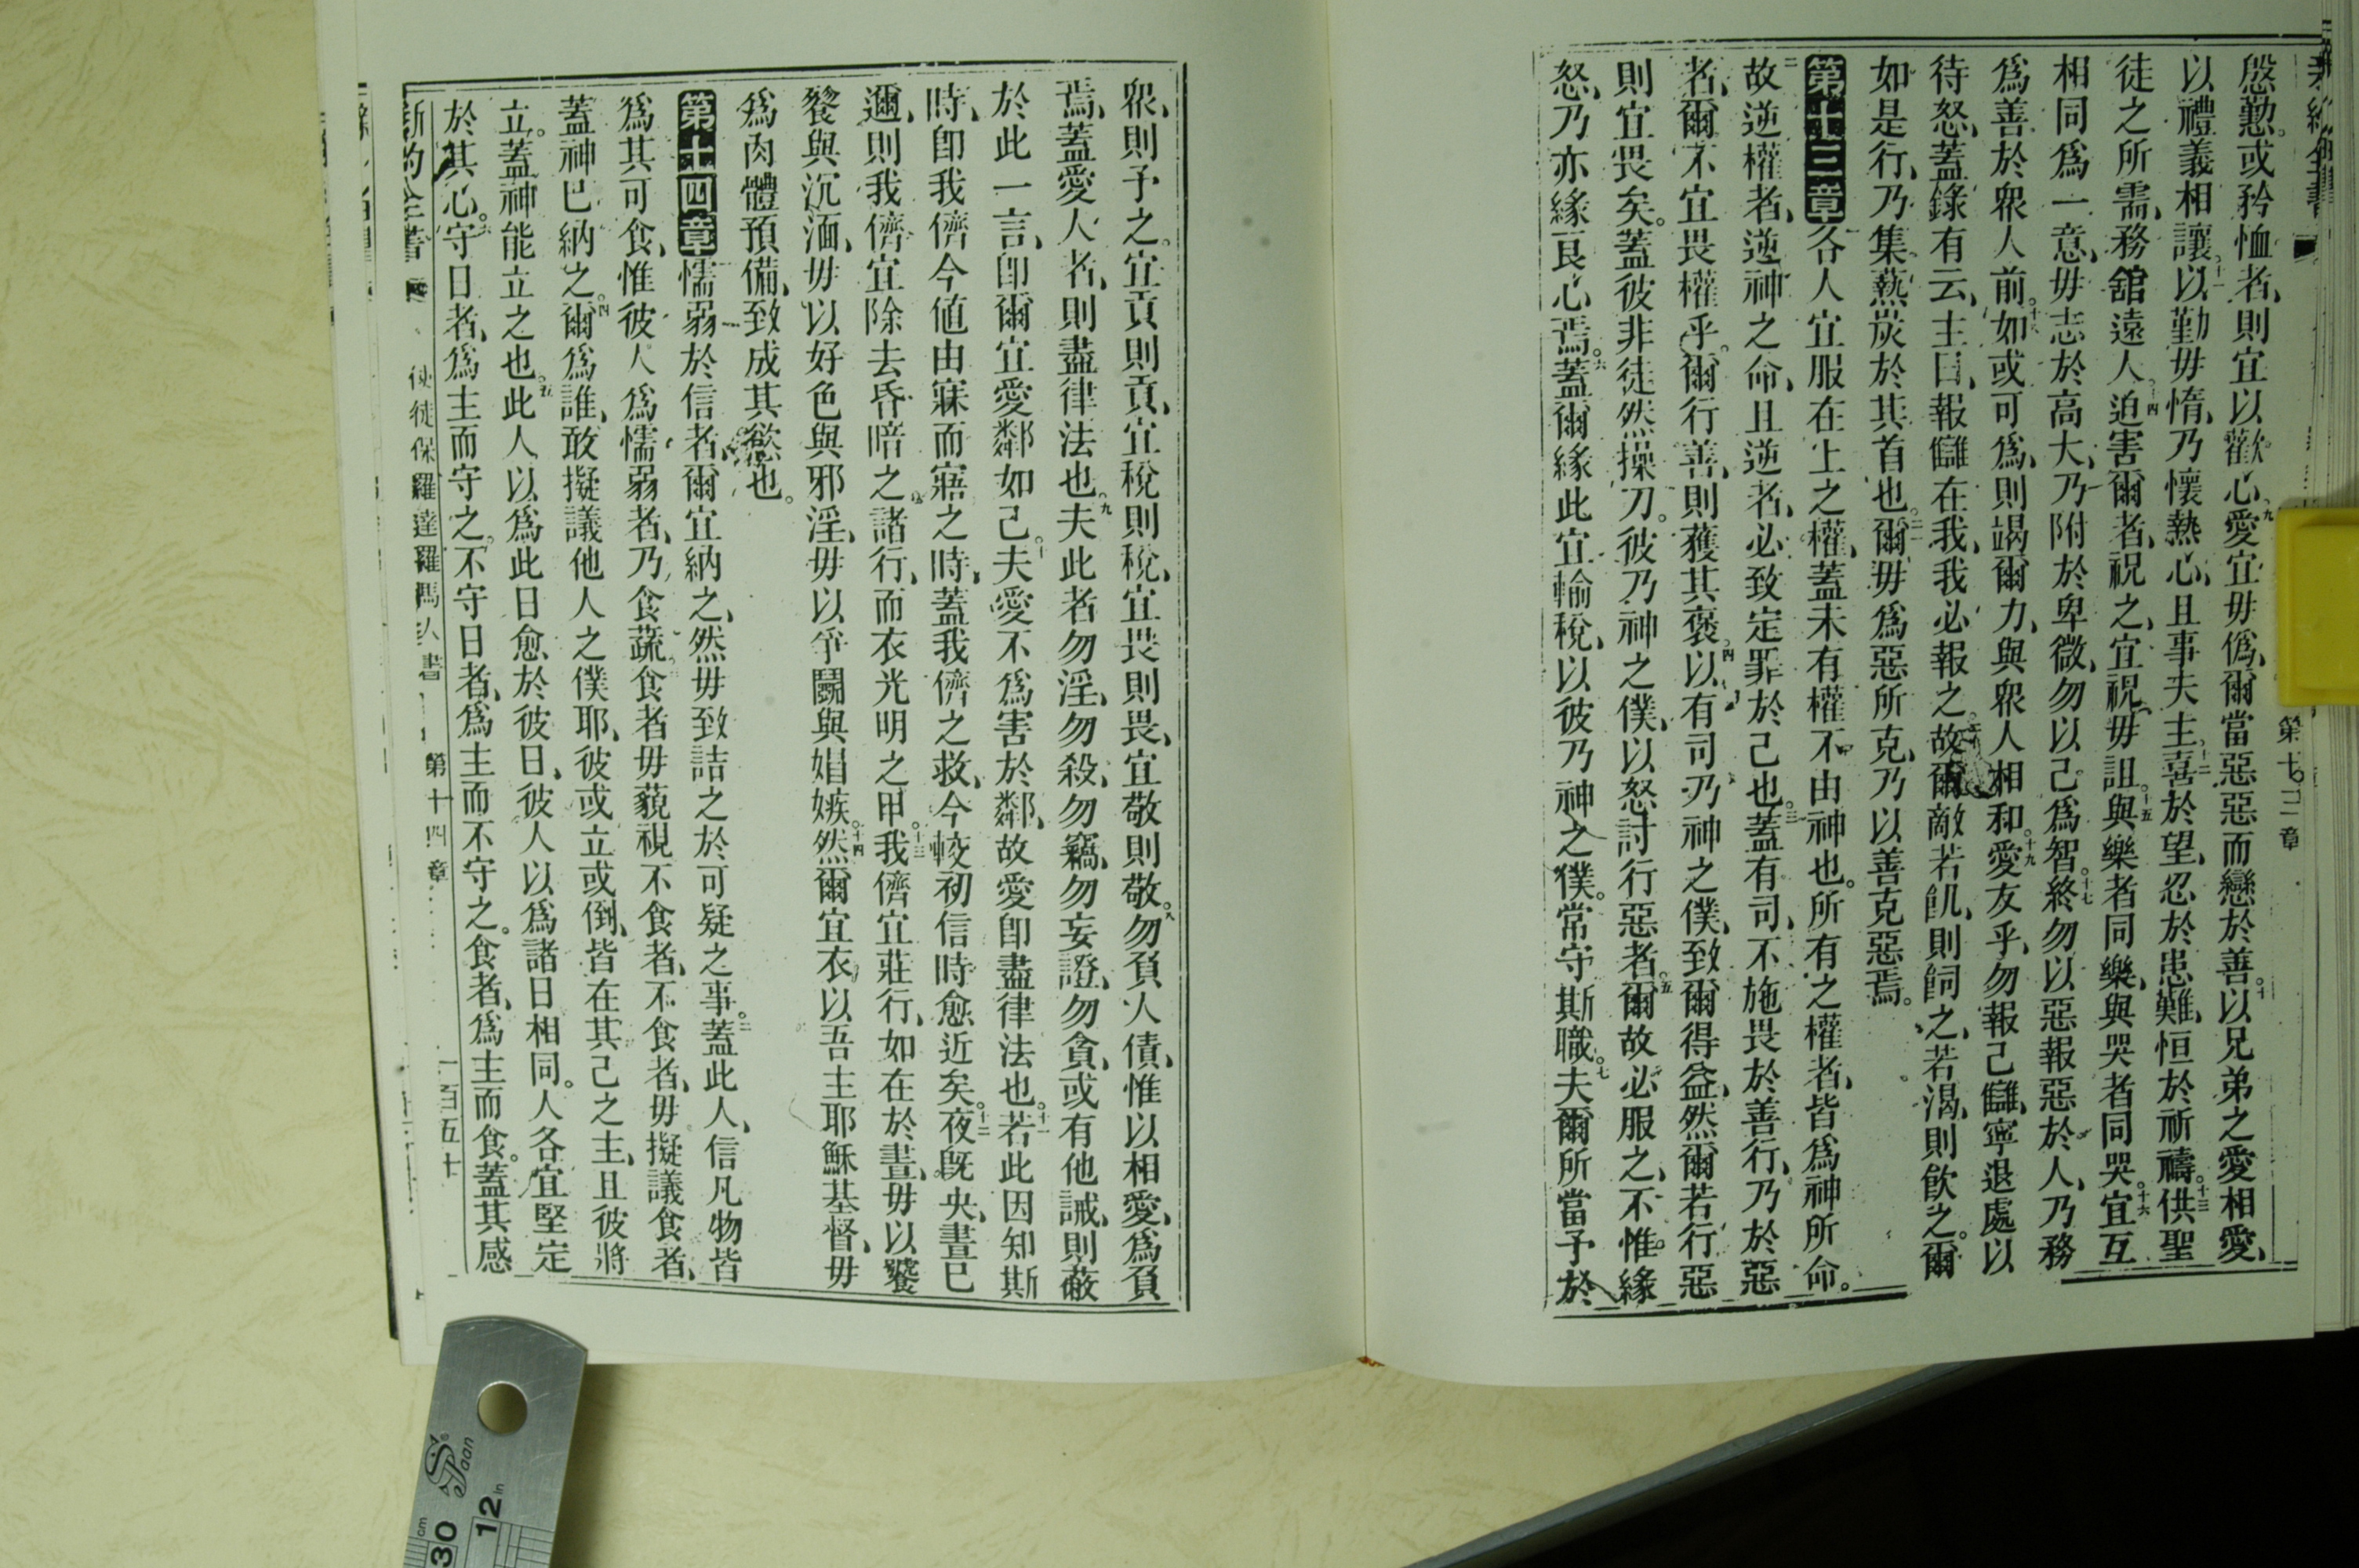 殷懃。或矜恤者、則宜以歡心。九愛宜毋僞、爾當惡惡而戀於善。十以兄弟之愛相愛、
以禮義相讓。十一以勤毋惰、乃懷熱心、且事夫主。十二喜於望、忍於患難、恒於祈禱。十三供聖
徒之所需、務舘遠人。十四迫害爾者、祝之、宜祝、毋詛。十五與樂者同樂、與哭者同哭。十六宜互
相同爲一意、毋志於高大、乃附於卑微、勿以己爲智。十七終勿以惡報惡於人、乃務
爲善於衆人前。十八如或可爲、則竭爾力、與衆人相和。十九愛友乎、勿報己讎、寧退處以
待怒、蓋錄有云、主曰、報讎在我、我必報之。故爾敵若飢、則飼之、若渴、則飲之。爾
如是行、乃集爇炭於其首也。爾毋爲惡所克、乃以善克惡焉。
第十三章各人宜服在上之權、蓋未有權不由神也。所有之權者、皆爲神所命。
二故逆權者、逆神之命、且逆者、必致定罪於己也。三蓋有司、不施畏於善行、乃於惡
者、爾不宜畏權乎。爾行善、則獲其褒。四以有司乃神之僕、致爾得益、然爾若行惡
則宜畏矣。蓋彼非徒然操刀。彼乃神之僕、以怒討行惡者。五爾故必服之、不惟緣
怒、乃亦緣良心焉。六蓋爾緣此宜輸稅、以彼乃神之僕。常守斯職。七夫爾所當予於
第十三章
衆、則予之。宜貢則貢、宜稅則稅、宜畏則畏、宜敬則敬。八勿負人債、惟以相愛、爲負
焉、蓋愛人者、則盡律法也。九夫此者勿淫、勿殺、勿竊、勿妄證、勿貪、或有他誡、則蔽
於此一言、卽爾宜愛鄰如己。十夫愛不爲害於鄰、故愛卽盡律法也。十一若此因知斯
時、卽我儕今値由寐而寤之時、蓋我儕之救、今較初信時愈近矣。十二夜旣央、晝已
邇、則我儕宜除去昏暗之諸行、而衣光明之甲。十三我儕宜莊行、如在於晝。毋以饕
餮與沉湎、毋以好色與邪淫、毋以爭鬭與娼嫉。十四然爾宜衣以吾主耶穌基督、毋
爲肉體預備、致成其慾也。
第十四章懦弱於信者、爾宜納之、然毋致詰之於可疑之事。二蓋此人、信凡物皆
爲其可食、惟彼人爲懦弱者、乃食蔬。食者毋藐視不食者、不食者、毋擬議食者、
蓋神已納之。四爾爲誰、敢擬議他人之僕耶、彼或立或倒、皆在其己之主、且彼將
立。蓋神能立之也。五此人以爲此日愈於彼日、彼人以爲諸日相同。人各宜堅定
於其心。六守日者、爲主而守之。不守日者、爲主而不守之。食者、爲主而食。蓋其感
新約全書 使徒保羅達羅馬人書 第十四章 一百五十
Spaan
cm 30
in 12